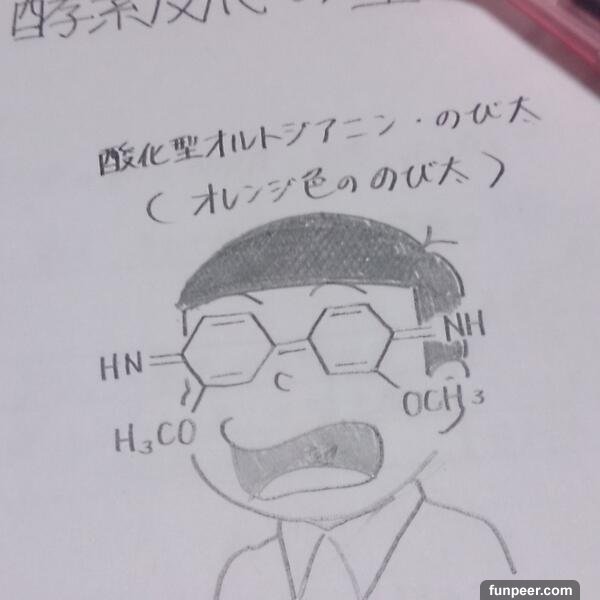 酵素反応
酸化型オルトジアニジン・のび太
(オレンジ色ののび太)
HN
NH
H₃CO
OCH₃
funpeer.com